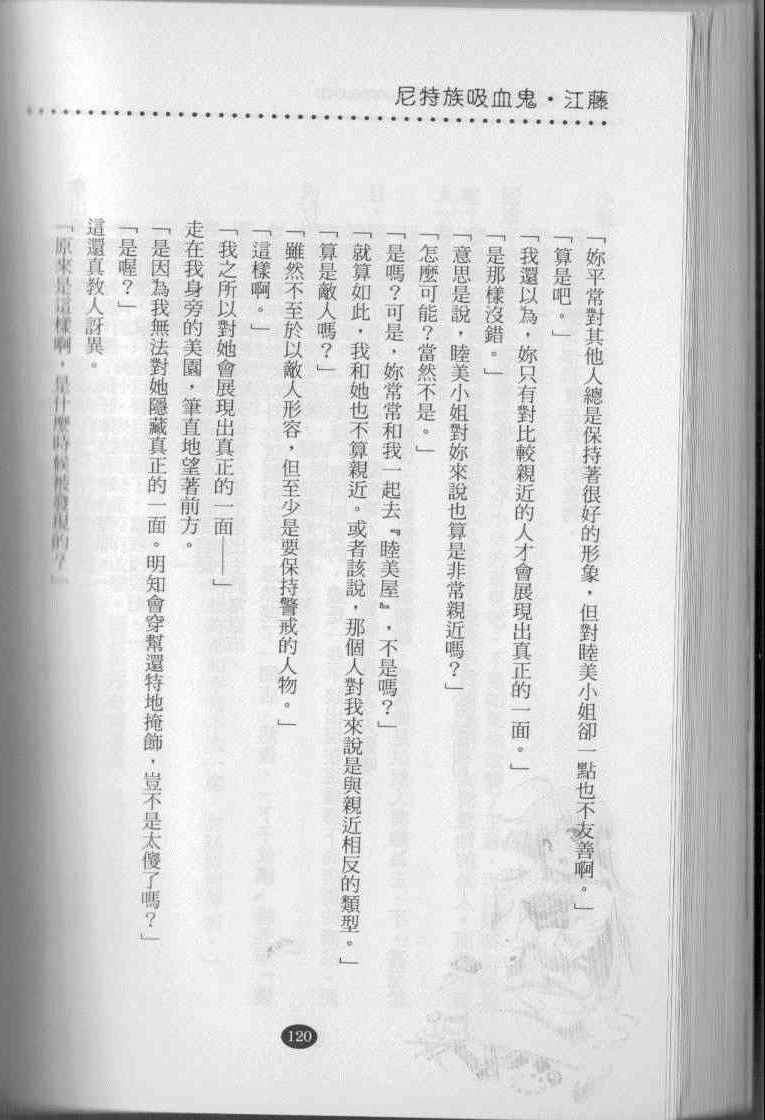 尼特族吸血鬼・江藤
「妳平常對其他人總是保持著很好的形象，但對睦美小姐卻一點也不友善啊。」
「算是吧。」
「我還以為，妳只有對比較親近的人才會展現出真正的一面。」
「是那樣沒錯。」
「意思是說，睦美小姐對妳來說也算是非常親近嗎？」
「怎麼可能？當然不是。」
「是嗎？可是，妳常常和我一起去『睦美屋』，不是嗎？」
「就算如此，我和她也不算親近。或者該說，那個人對我來說是與親近相反的類型。」
「算是敵人嗎？」
「雖然不至於以敵人形容，但至少是要保持警戒的人物。」
「這樣啊。」
「我之所以對她會展現出真正的一面——」
走在我身旁的美園，筆直地望著前方。
「是因為我無法對她隱藏真正的一面。明知會穿幫還特地掩飾，豈不是太傻了嗎？」
「是喔？」
這還真教人訝異。
「原來是這樣啊，是什麼時候被發現的？」
120